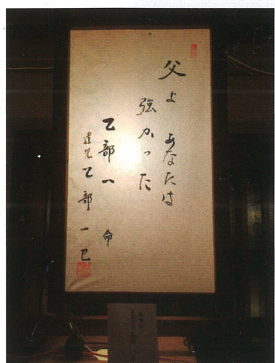 父よ あなたは
強かった
乙部一 命
遺児 乙部一己